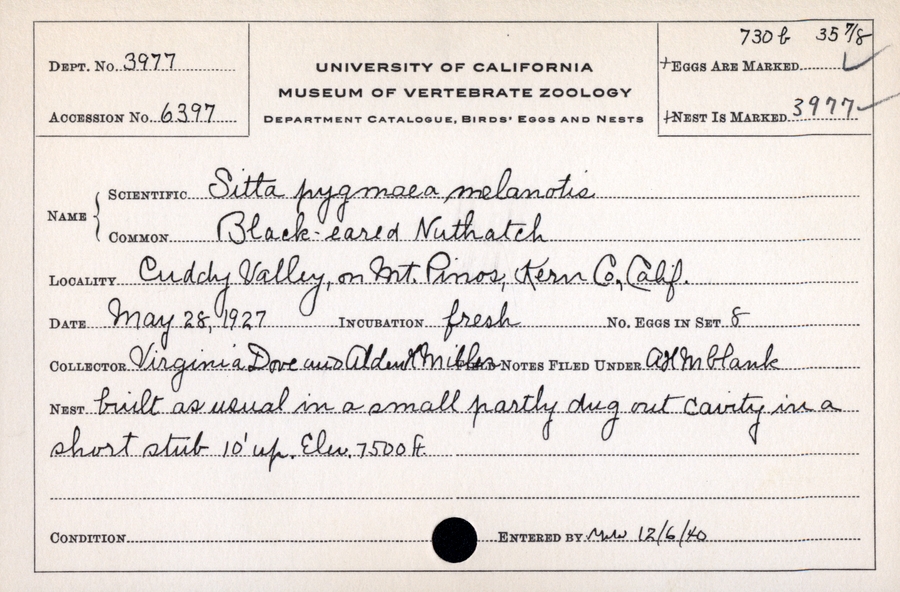 730 b 35 7/8
DEPT. No. 3977
UNIVERSITY OF CALIFORNIA
+EGGS ARE MARKED ✓
MUSEUM OF VERTEBRATE ZOOLOGY
ACCESSION No. 6397
DEPARTMENT CATALOGUE, BIRDS' EGGS AND NESTS
+NEST IS MARKED 3977
NAME
SCIENTIFIC Sitta pygmaea melanotis
COMMON Black-eared Nuthatch
LOCALITY Cuddy Valley, on Mt. Pinos, Kern Co., Calif.
DATE May 28, 1927 INCUBATION fresh No. EGGS IN SET 8
COLLECTOR Virginia Dove and Alden H Miller NOTES FILED UNDER AHM blank
NEST built as usual in a small partly dug out cavity in a
short stub 10' up. Elev. 7500 ft.
CONDITION ENTERED BY 12/6/40